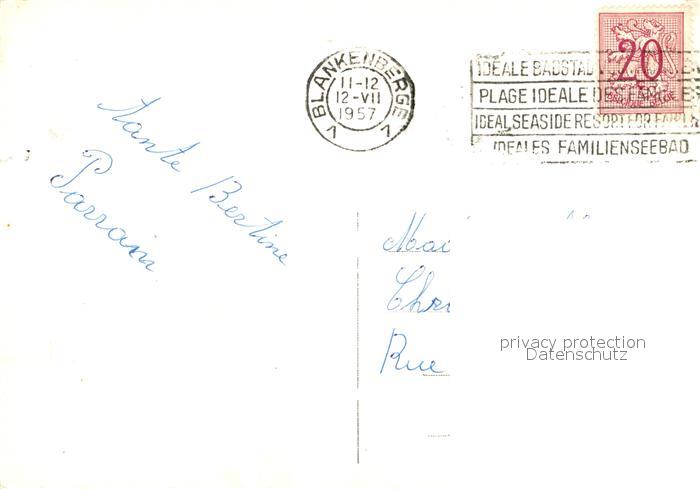 BLANKENBERGE
11-12
12-VII
1957
1 1
20
IDEALE BADSTAD
PLAGE IDEALE DES FAMILLES
IDEAL SEASIDE RESORT FOR FAMILI
IDEALES FAMILIENSEEBAD
Tante Bertine
Parrain
Rue
privacy protection
Datenschutz